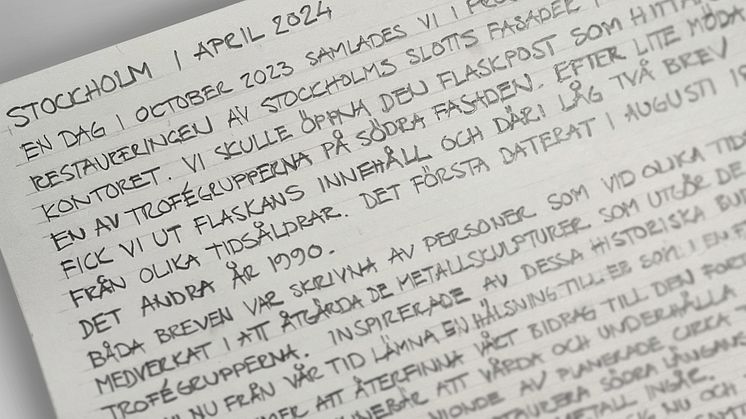 STOCKHOLM I APRIL 2024
EN DAG I OCTOBER 2023 SAMLADES VI I
RESTAURERINGEN AV STOCKHOLMS SLOTTS FASADER I
KONTORET. VI SKULLE ÖPPNA DEN FLASKPOST SOM HITTA
EN AV TROFÉGRUPPERNA PÅ SÖDRA FASADEN. EFTER LITE MÖDA
FICK VI UT FLASKANS INNEHÅLL OCH DÄRI LÅG TVÅ BREV
FRÅN OLIKA TIDSÅLDRAR. DET FÖRSTA DATERAT I AUGUSTI
DET ANDRA ÅR 1990.
BÅDA BREVEN VAR SKRIVNA AV PERSONER SOM VID OLIKA TIDS
MEDVERKAT I ATT ÅTGÄRDA DE METALLSKULPTURER SOM UTGÖR DE
TROFÉGRUPPERNA. INSPIRERADE AV DESSA HISTORISKA
NU FRÅN VÅR TID LÄMNA EN HÄLSNING TILL ER SOM I EN
ATT ÅTERFINNA VÅRT BIDRAG TILL DEN
ATT VÅRDA OCH UNDERHÅLLA
AV PLANERADE CIRKA
SÖDRA LÅNGANS
INGÅR.
NU OCH